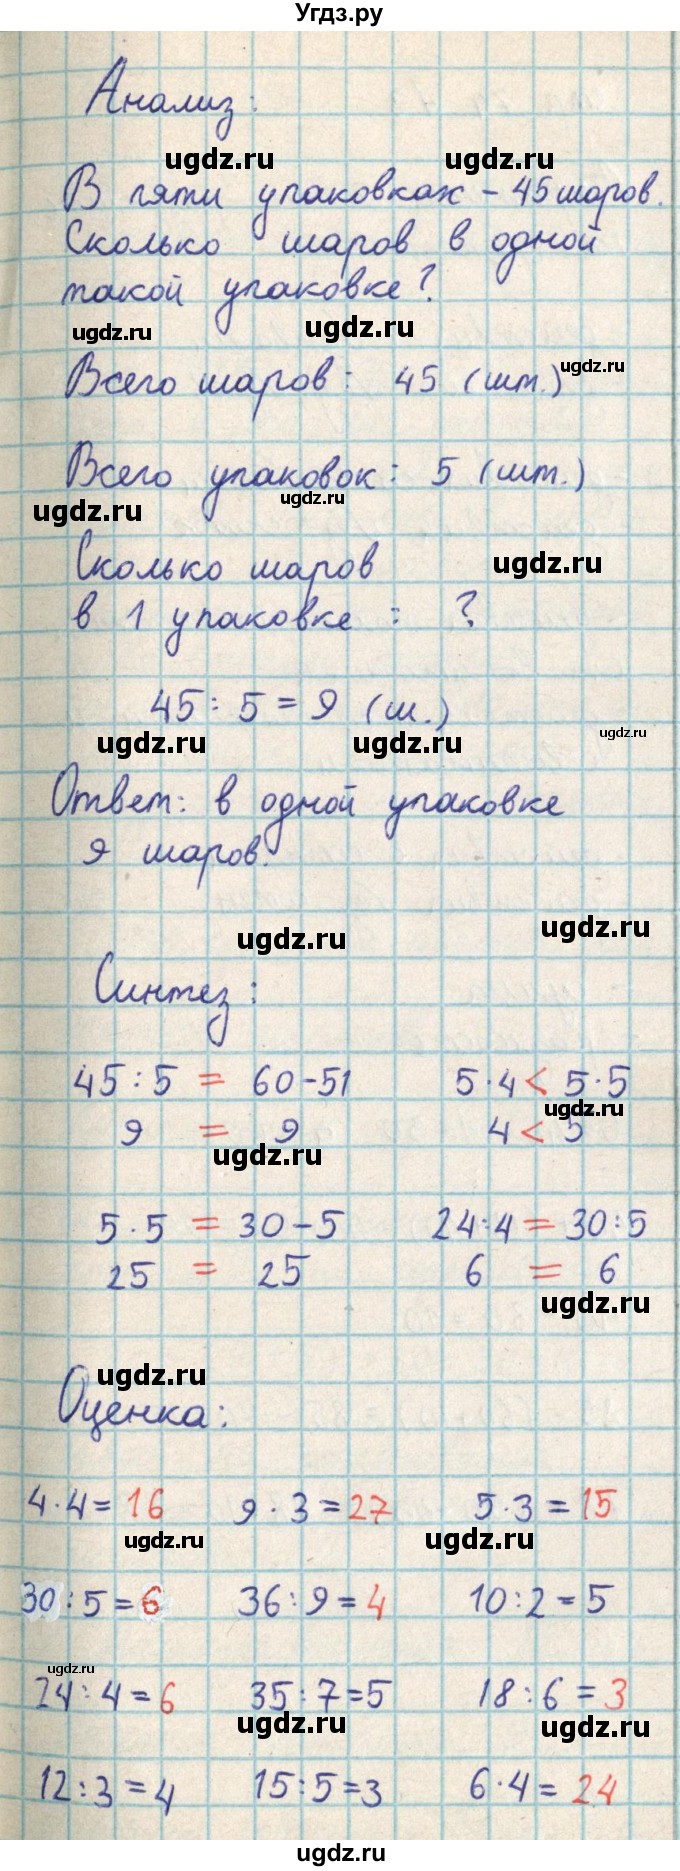 Угдз.ру
Анализ:
ugdz.ru ugdz.ru
В пяти упаковках - 45 шаров.
Сколько шаров в одной
такой упаковке?
ugdz.ru ugdz.ru
ugdz.ru
Всего шаров: 45 (шт.)
Всего упаковок: 5 (шт.)
ugdz.ru ugdz.ru
Сколько шаров ugdz.ru
в 1 упаковке : ?
45 : 5 = 9 (ш.)
ugdz.ru ugdz.ru ugdz.ru
Ответ: в одной упаковке
9 шаров.
ugdz.ru ugdz.ru
Синтез:
45 : 5 = 60 - 51 5 · 4 < 5 · 5
ugdz.ru
9 = 9 4 < 5
ugdz.ru
5 · 5 = 30 - 5 24 : 4 = 30 : 5
25 = 25 6 = 6
ugdz.ru
ugdz.ru
Оценка:
4 · 4 = 16 9 · 3 = 27 5 · 3 = 15
ugdz.ru ugdz.ru
30 : 5 = 6 36 : 9 = 4 10 : 2 = 5
ugdz.ru
24 : 4 = 6 35 : 7 = 5 18 : 6 = 3
ugdz.ru ugdz.ru
12 : 3 = 4 15 : 5 = 3 6 · 4 = 24
ugdz.ru